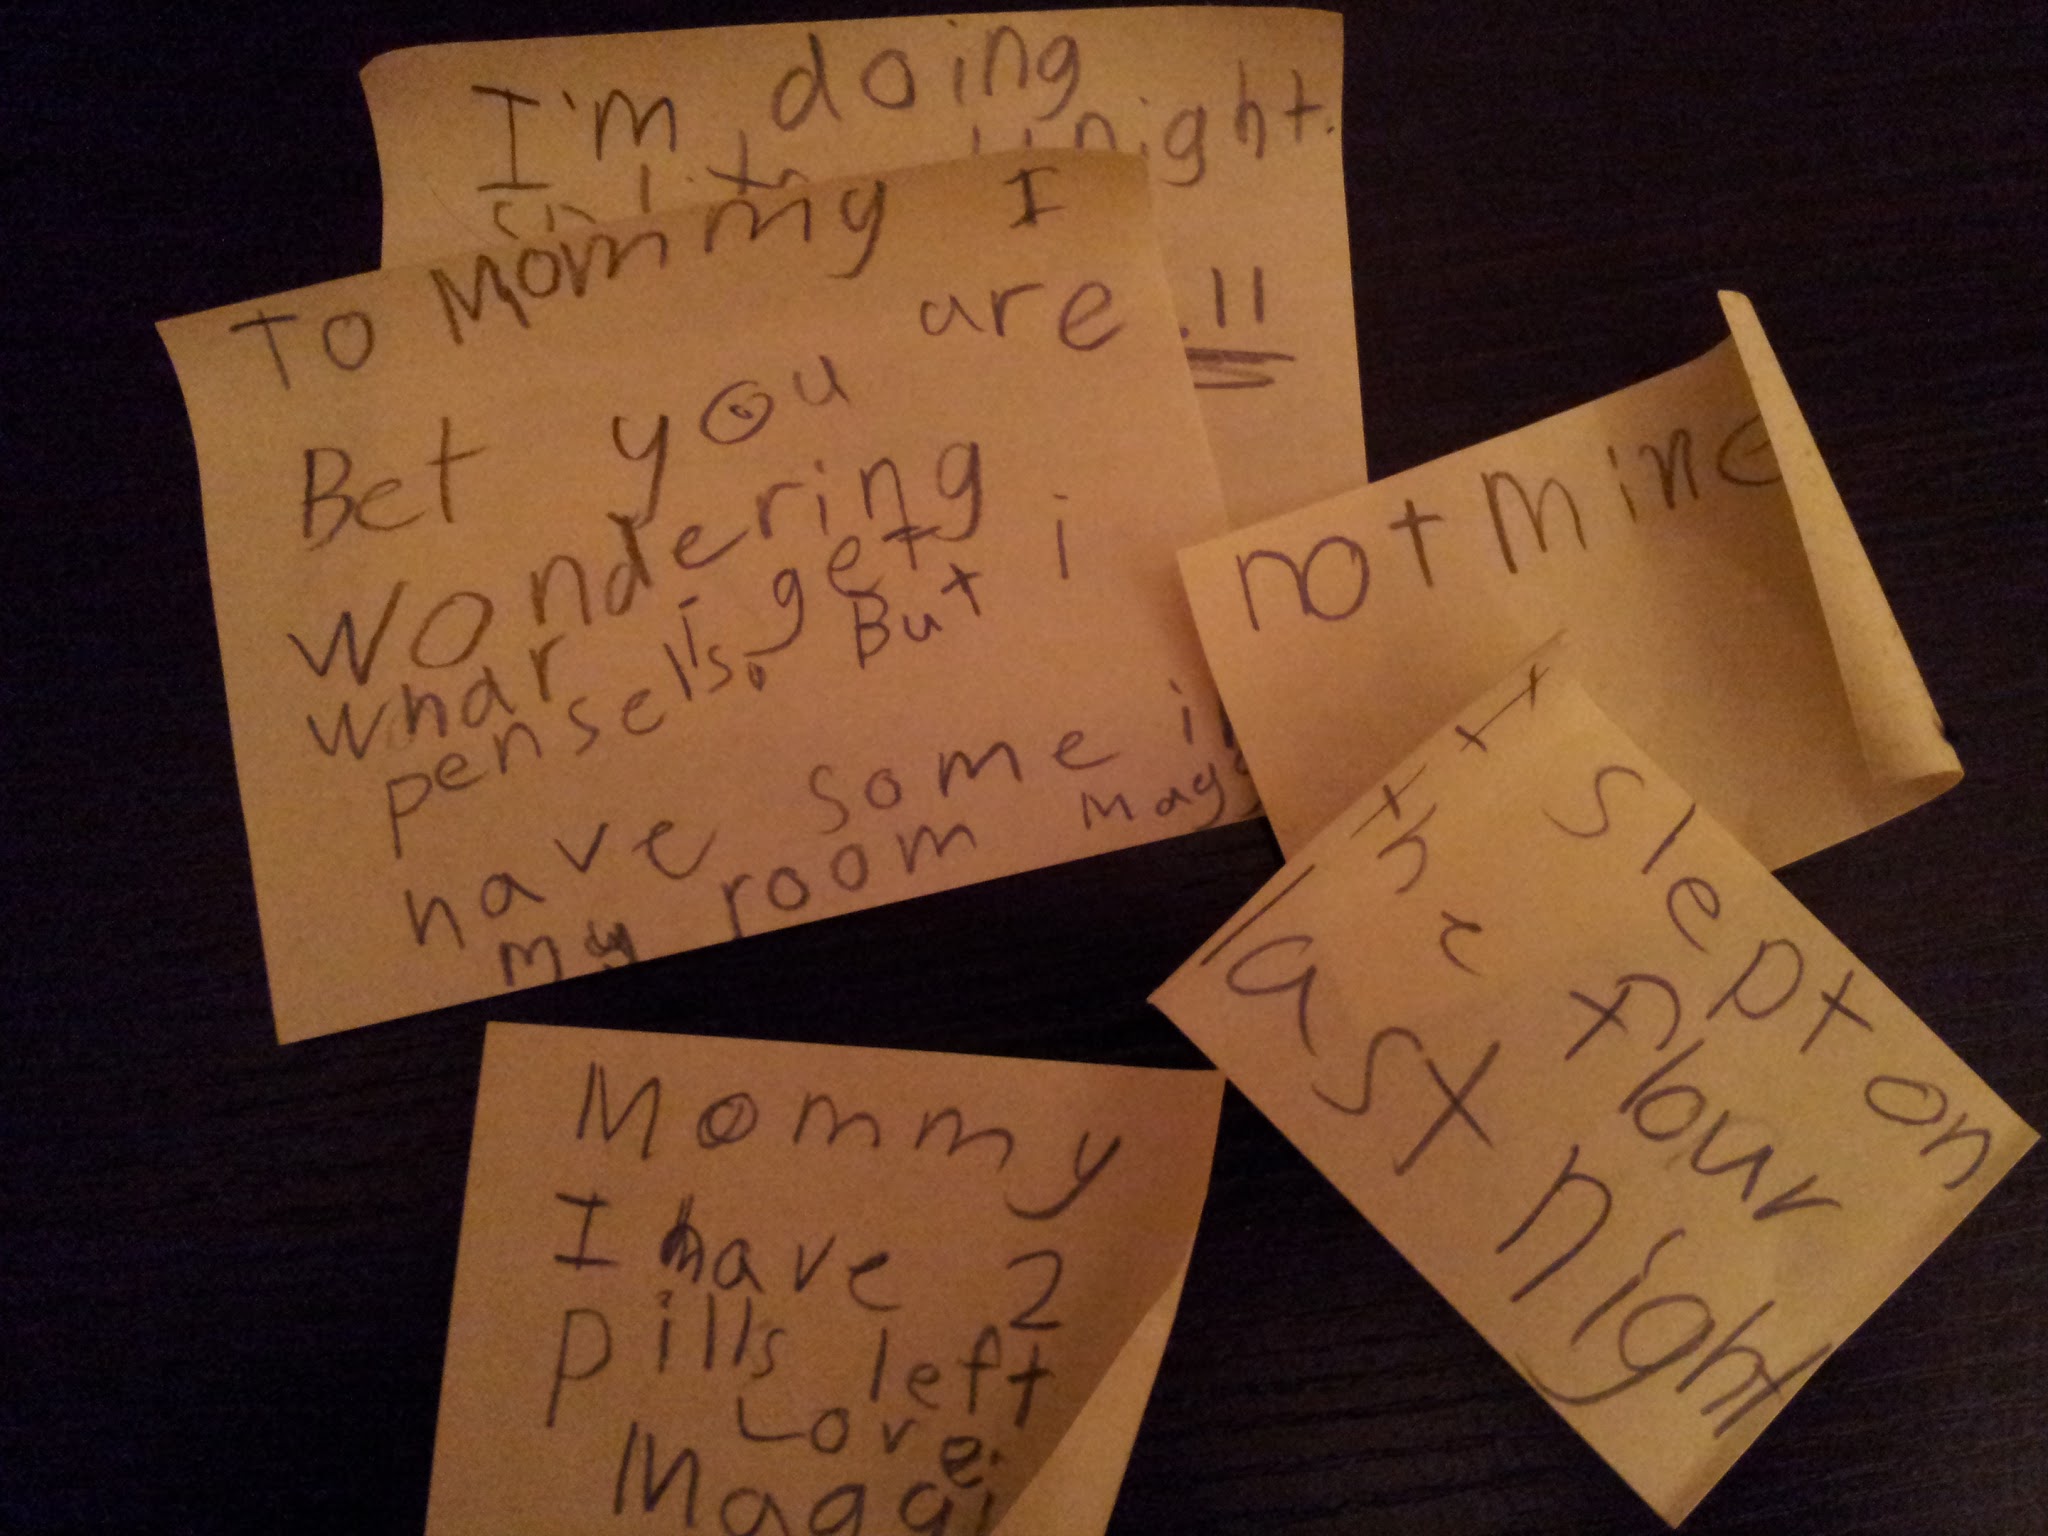 I'm doing
night.
.!!
To Mommy I
Bet you are
wondering
whar I get
pensells. But i
have some
my room
not mine
I slept on
the flour
last night
Mommy
I have 2
pills left
Love
Maggi